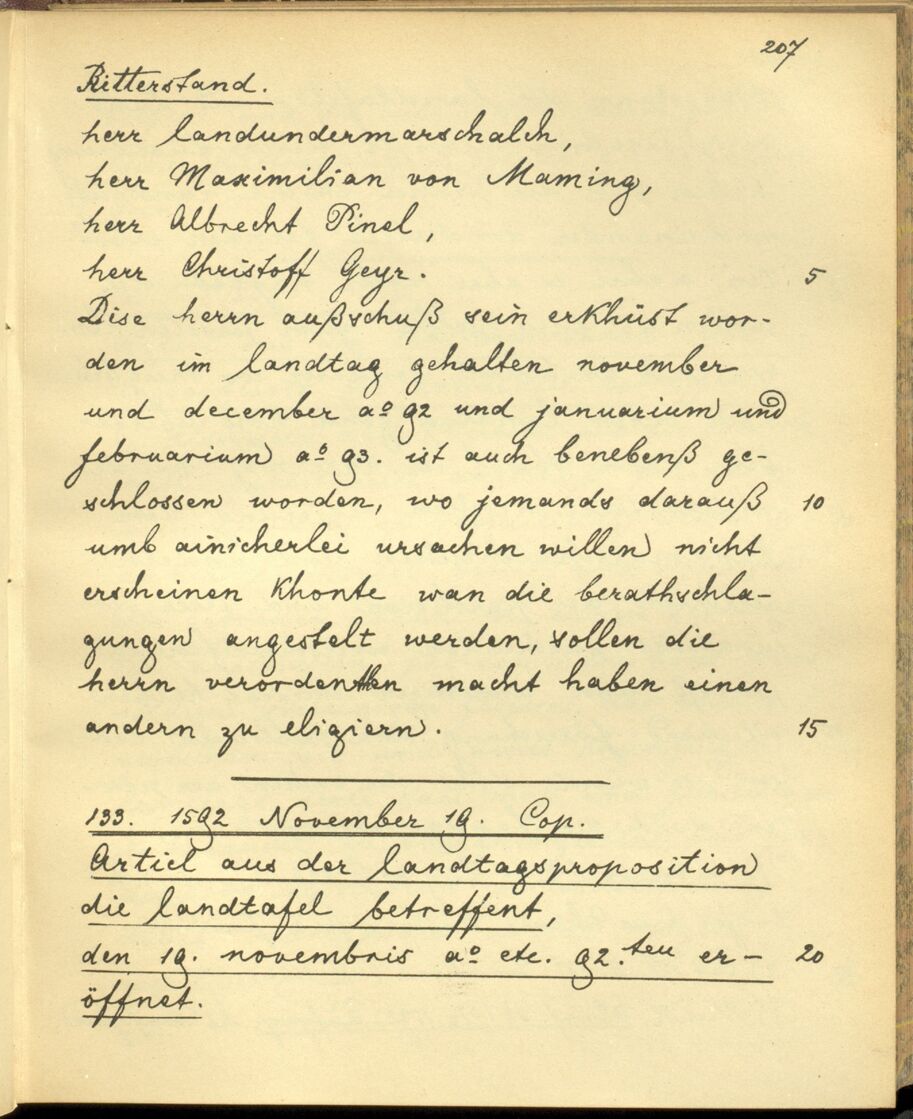 207
Ritterstand.
herr landundermarschalch,
herr Maximilian von Maming,
herr Albrecht Pinel,
herr Christoff Geyr. 5
Dise herrn außschuß sein erkhüst wor-
den im landtag gehalten november
und december aº 92 und januarium und
februarium aº 93. ist auch benebenß ge-
schlossen worden, wo jemands darauß 10
umb ainicherlei ursachen willen nicht
erscheinen khonte wan die berathschla-
gungen angestelt werden, sollen die
herrn verordenten macht haben einen
andern zu eligiern. 15
133. 1592 November 19. Cop.
Articl aus der landtagsproposition
die landtafel betreffent,
den 19. novembris aº etc. 92.ten er- 20
öffnet.